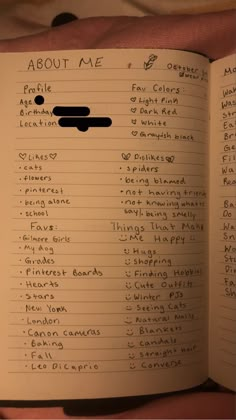 ABOUT ME
October
Profile
Age
Birthday
Location
Fav Colors:
♡ Light Pink
♡ Dark Red
♡ White
♡ Grayish black
♡ Likes ♡
• cats
• flowers
• pinterest
• being alone
• school
Dislikes
• spiders
• being blamed
• not having friends
• not knowing what to
say/being smelly
Favs:
• Gilmore Girls
• My dog
• Grades
• Pinterest Boards
• Hearts
• Stars
• New York
• London
• Canon cameras
• Baking
• Fall
• Leo DiCaprio
Things That Make
Me Happy
Hugs
Shopping
Finding Hobbies
Cute Outfits
Winter PJs
Seeing Cats
Natural Nails
Blankets
Candals
Straight hair
Converse